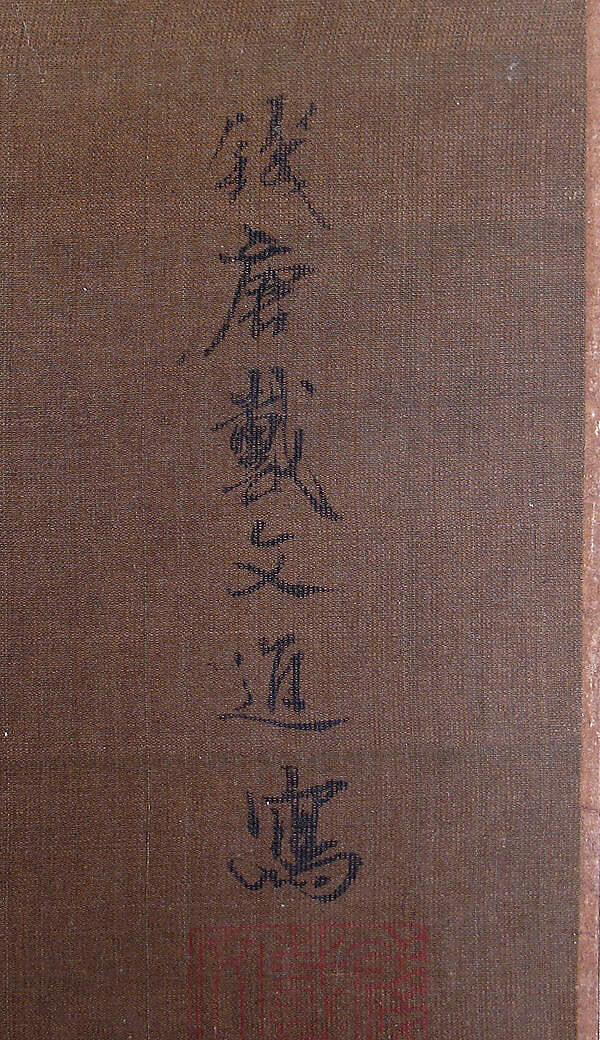 錢唐戴文進寫